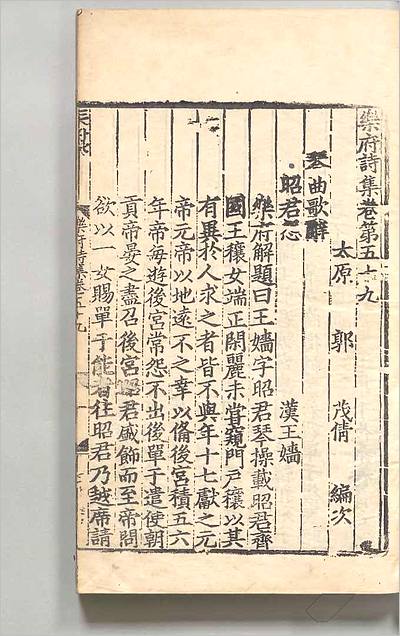 樂府詩集卷第五十九
太原 郭 茂倩 編次
琴曲歌辭
昭君怨 漢王嬙
樂府解題曰王嬙字昭君琴操載昭君齊
國王穰女端正閑麗未嘗窺門戶穰以其
有異於人求之者皆不與年十七獻之元
帝元帝以地遠不之幸以俻後宮積五六
年帝每遊後宮常怨不出後單于遣使朝
貢帝宴之盡召後宮昭君盛飾而至帝問
欲以一女賜單于能者往昭君乃越席請
樂府詩集卷五十九